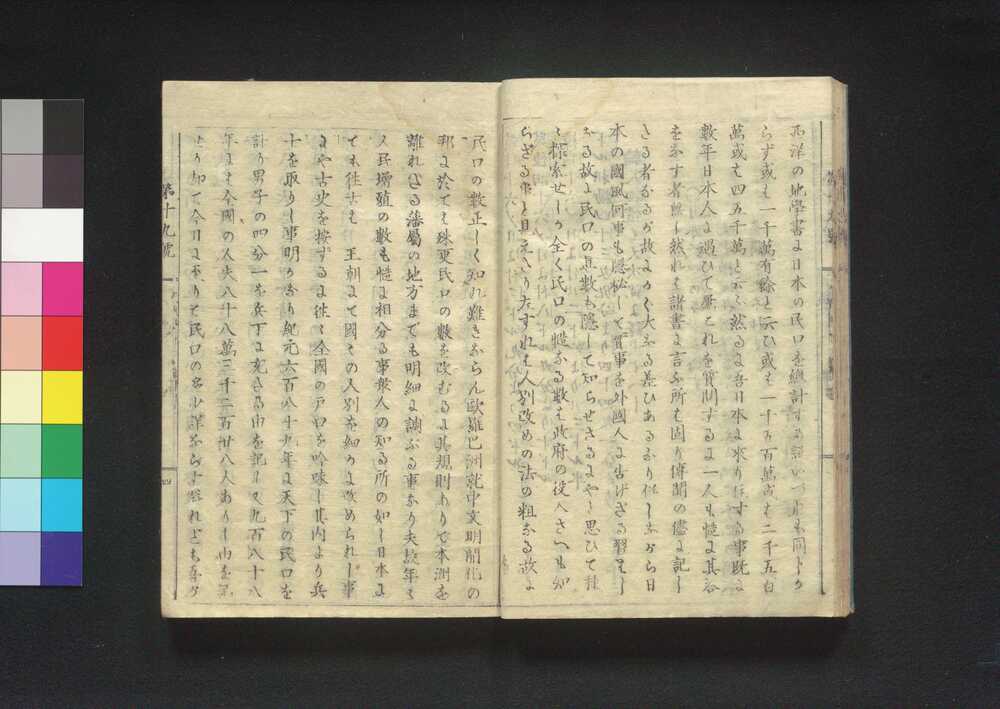 西洋の地學書に日本の民口を總計する説いづれも同じか
らず或は一千萬有餘と云ひ或は一千五百萬或は二千五百
萬或は四五千萬と云ふ然るに吾日本に來り住する事既に
數年日本人に遇ひて屡これを質問するに一人も慥に其答
をなす者無し然れは諸書に言ふ所も固り傳聞の儘に記し
たる者なるが故にかく大なる差ひあるなり但しなから日
本の國風何事も隱秘して實事を外國人に告げざる習はし
なる故に民口の員數も隱して知らせさるにやと思ひて種
々探索せしが全く民口の慥なる數は政府の役人さへも知
らざる事と見えたり左すれは人別改めの法の粗なる故に
民口の數正しく知れ難きならん歐羅巴洲就中文明開化の
邦に於ても殊更民口の數を改むるに其規則ありて本洲を
離れたる藩屬の地方までも明細に調ぶる事なり夫故年々
人民增殖の數も慥に相分る事衆人の知る所の如し日本に
ても往古は 王朝にて國々の人別を細かに改められし事
にや古史を按ずるに往々全國の戸口を吟味し其内より兵
士を取りし事明かなり紀元六百八十九年に天下の民口を
計り男子の四分一を兵丁に充たる由を記し又九百八十八
年には全國の人夫八十八萬三千三百廿八人ありし由を記
せり却て今日に至りて民口の多少詳ならす然れども
第十九號
四